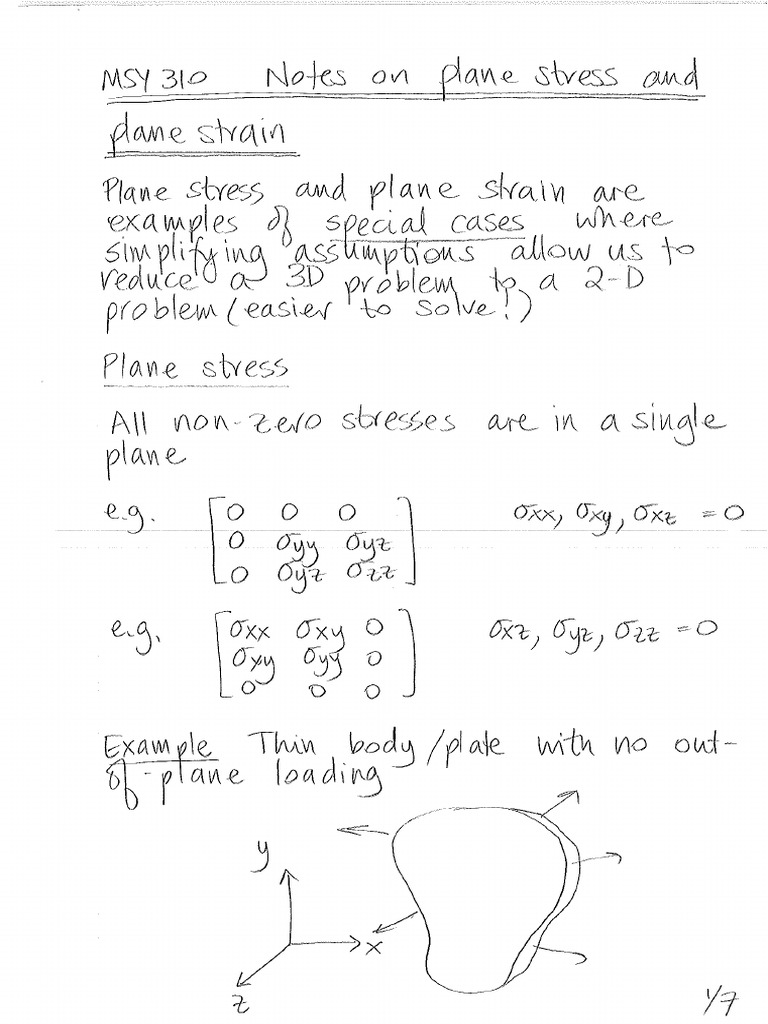 MSY 310 Notes on plane stress and
plane strain
Plane stress and plane strain are
examples of special cases where
simplifying assumptions allow us to
reduce a 3D problem to a 2-D
problem (easier to solve!)
Plane stress
All non-zero stresses are in a single
plane
e.g. [ 0 0 0 ] σxx, σxy, σxz = 0
0 σyy σyz
0 σyz σzz
e.g. [ σxx σxy 0 ] σxz, σyz, σzz = 0
σxy σyy 0
0 0 0
Example Thin body/plate with no out-
of-plane loading
y
x
z
1/7